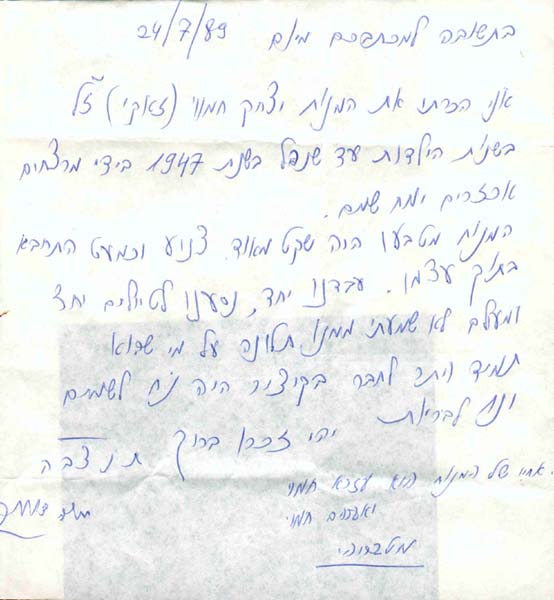 בתשובה למכתבכם מיום 24/7/89
אני הכרתי את המנוח יצחק חמווי (זאקי) ז"ל
בשנות הילדות עד שנפל בשנת 1947 בידי מרצחים
אכזרים ימח שמם.
המנוח מטבעו היה שקט מאוד צנוע וכמעט התחבא
בתוך עצמו. עבדנו יחד, נסענו לטיולים יחד
ומעולם לא שמעתי ממנו תלונה על מי שהוא
תמיד ויתר לחבר בקיצור היה נוח לשמים
ונוח לבריות יהי זכרו ברוך ת נ צ ב ה
אחיו של המנוח הוא עזרא חמוי
חמוי
מטבריה